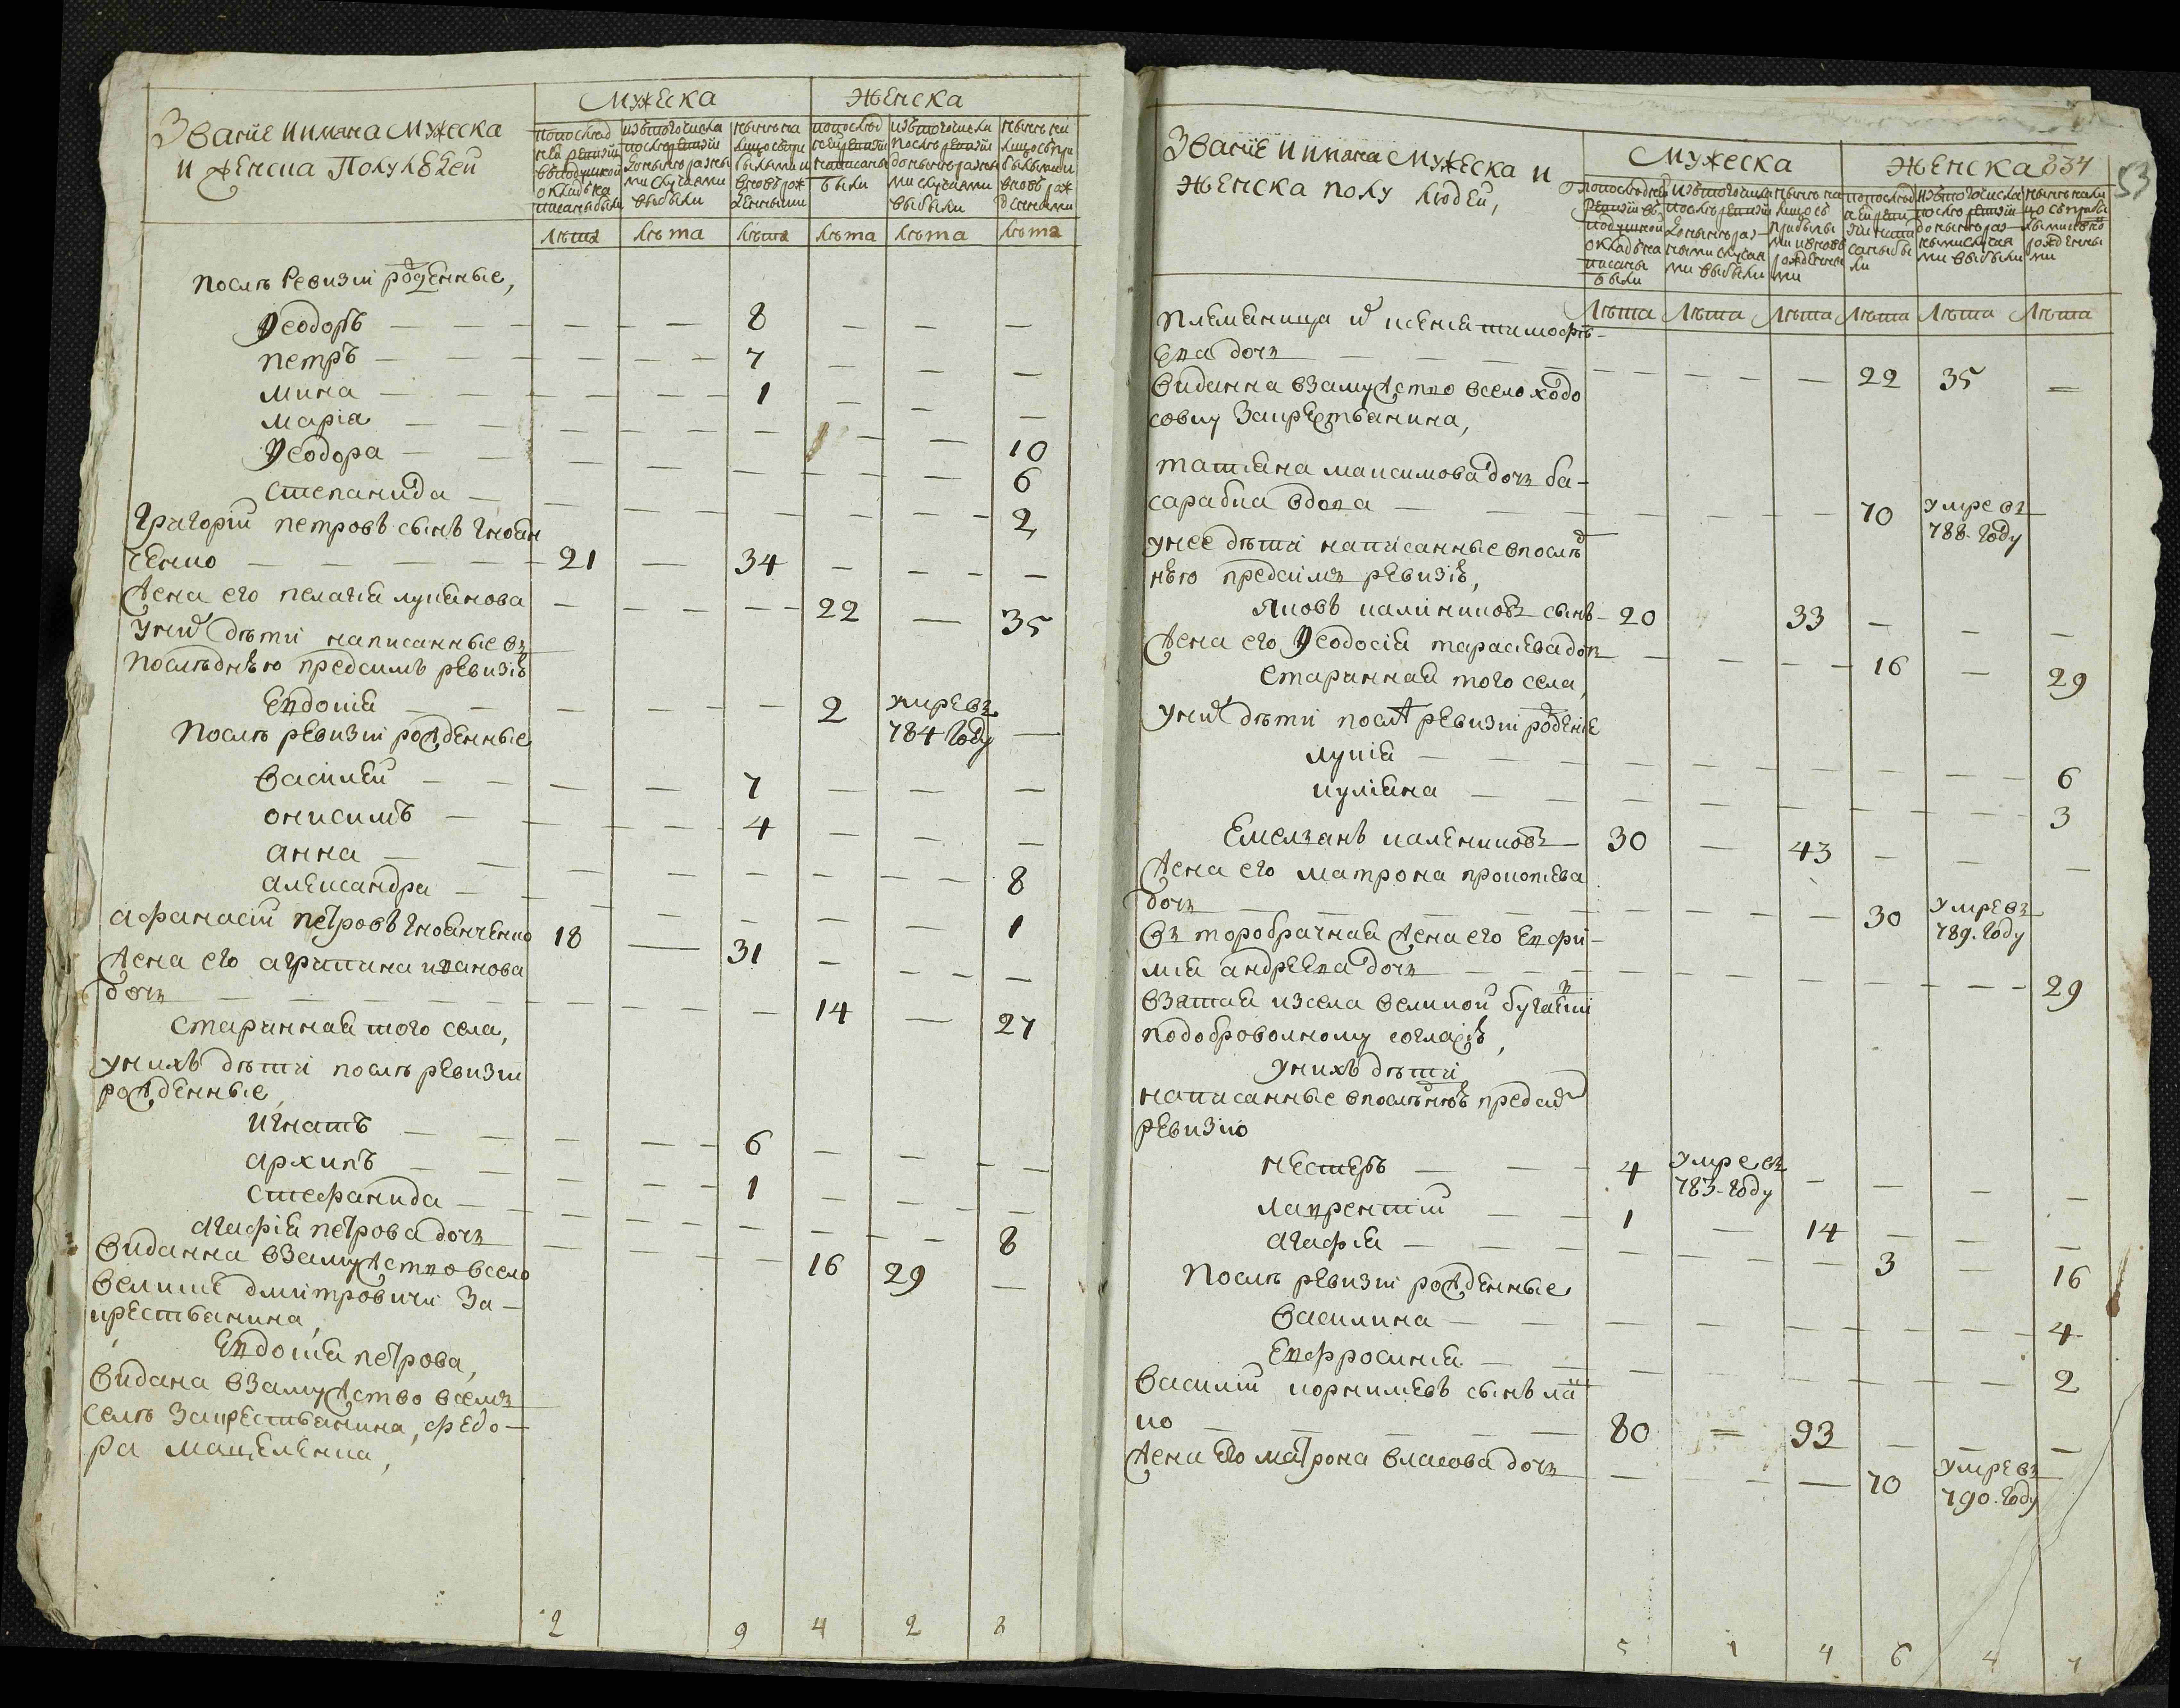 Званїе и имяна мужеска
и женска полу людей
Мужеска
Женска
по послѣд
ней ревизїи
въ подушной
окладъ на
писаны были
изъ того числа
после ревизїи
до нынѣ разны
ми случаями
выбыли
нынѣ на
лицо съ при
былыми и
вновь рож
денными
по послед
ней ревизїи
написаны
были
изъ того числа
после ревизїи
до нынѣ разны
ми случаями
выбыли
нынѣ на
лицо съ при
былыми и
вновь рож
денными
лѣта лѣта лѣта лѣта лѣта лѣта
послѣ ревизїи рожденные,
Ѳеодоръ 8
петръ 7
мина 1
марїя 10
Ѳеодора 6
степанида 2
Григорїй петровъ сынъ гноян
ченко 21 34
жена его пелагїя лукянова 22 35
у них дѣти написанные въ
послѣднѣю предсимъ ревизїѣ
Евдокїя 2 умре въ
784 году
послѣ ревизїи рожденные
василей 7
онисимъ 4
анна 8
александра 1
афанасїй петровъ гноянченко 18 31
жена его агрипина иванова
дочь 14 27
стариннaя того села,
у нихъ дѣти послѣ ревизїи
рожденные,
игнатъ 6
архипъ 1
стефанида 8
агафїя петрова дочь 16 29
видана в замужство в село
велике дмитровичи за
крестьянина,
Евдокїя петрова,
видана в замужство в семъ
селѣ за крестьянина, федо-
ра мащеленка,
2 9 4 2 8
Званїе и имяна мужеска и
женска полу людей,
Мужеска
Женска 334
53
по последней
ревизїи въ
подушной
окладъ на
писаны
были
изъ того числа
послѣ ревизїи
до нынѣ раз-
ными случая
ми выбыли
нынѣ на
лицо съ
прибылы
ми и вновь
рожденны
ми
по послѣд
ней реви
зїи напи
саны бы
ли
изъ того числа
послѣ ревизїи
до нынѣ раз-
ными случая
ми выбыли
нынѣ на ли
цо съ прибы
лыми и вно
рожденны
ми
Лѣта Лѣта Лѣта Лѣта Лѣта Лѣта
племяница их ксенїя тимофѣ-
ева дочь 22 35
видана в замужство в село ходо
совку за крестьянина,
татїяна максимова дочь ба-
сарабка вдова 70 умре въ
788. году
у нее дѣти написанные в послѣд
нѣю предсимъ ревизїѣ,
яковъ калиниковъ сынъ 20 33
жена его Ѳеодосїя тарасїева дочь 16 29
стариннaя того села,
у них дѣти послѣ ревизїи рожденїе
лукїя 6
кулїяна 3
Емелъянъ калениковъ 30 43
жена его матрона прокопїева
дочь 30 умре въ
789. году
въторобрачная жена его Евфи-
мїя андреева дочь 29
взятая из села великой бугаевки
по доброволному согласїѣ,
у нихъ дѣти
написанные в послѣднюѣ предсим
ревизїю
нестеръ 4 умре въ
783. году
лаврентїй 1 14
агафїя 3 16
послѣ ревизїи рожденные
василина 4
Евфросинїя 2
василїй корнилїевъ сынъ
ко 80 93
жена его матрона власова дочь 70 умре въ
790. году
5 1 4 6 4 7